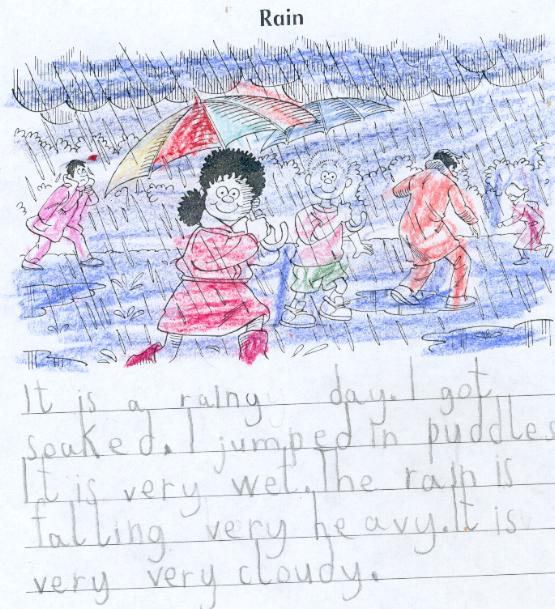 Rain
It is a rainy day. I got
soaked. I jumped in puddles
It is very wet. The rain is
falling very heavy. It is
very very cloudy.